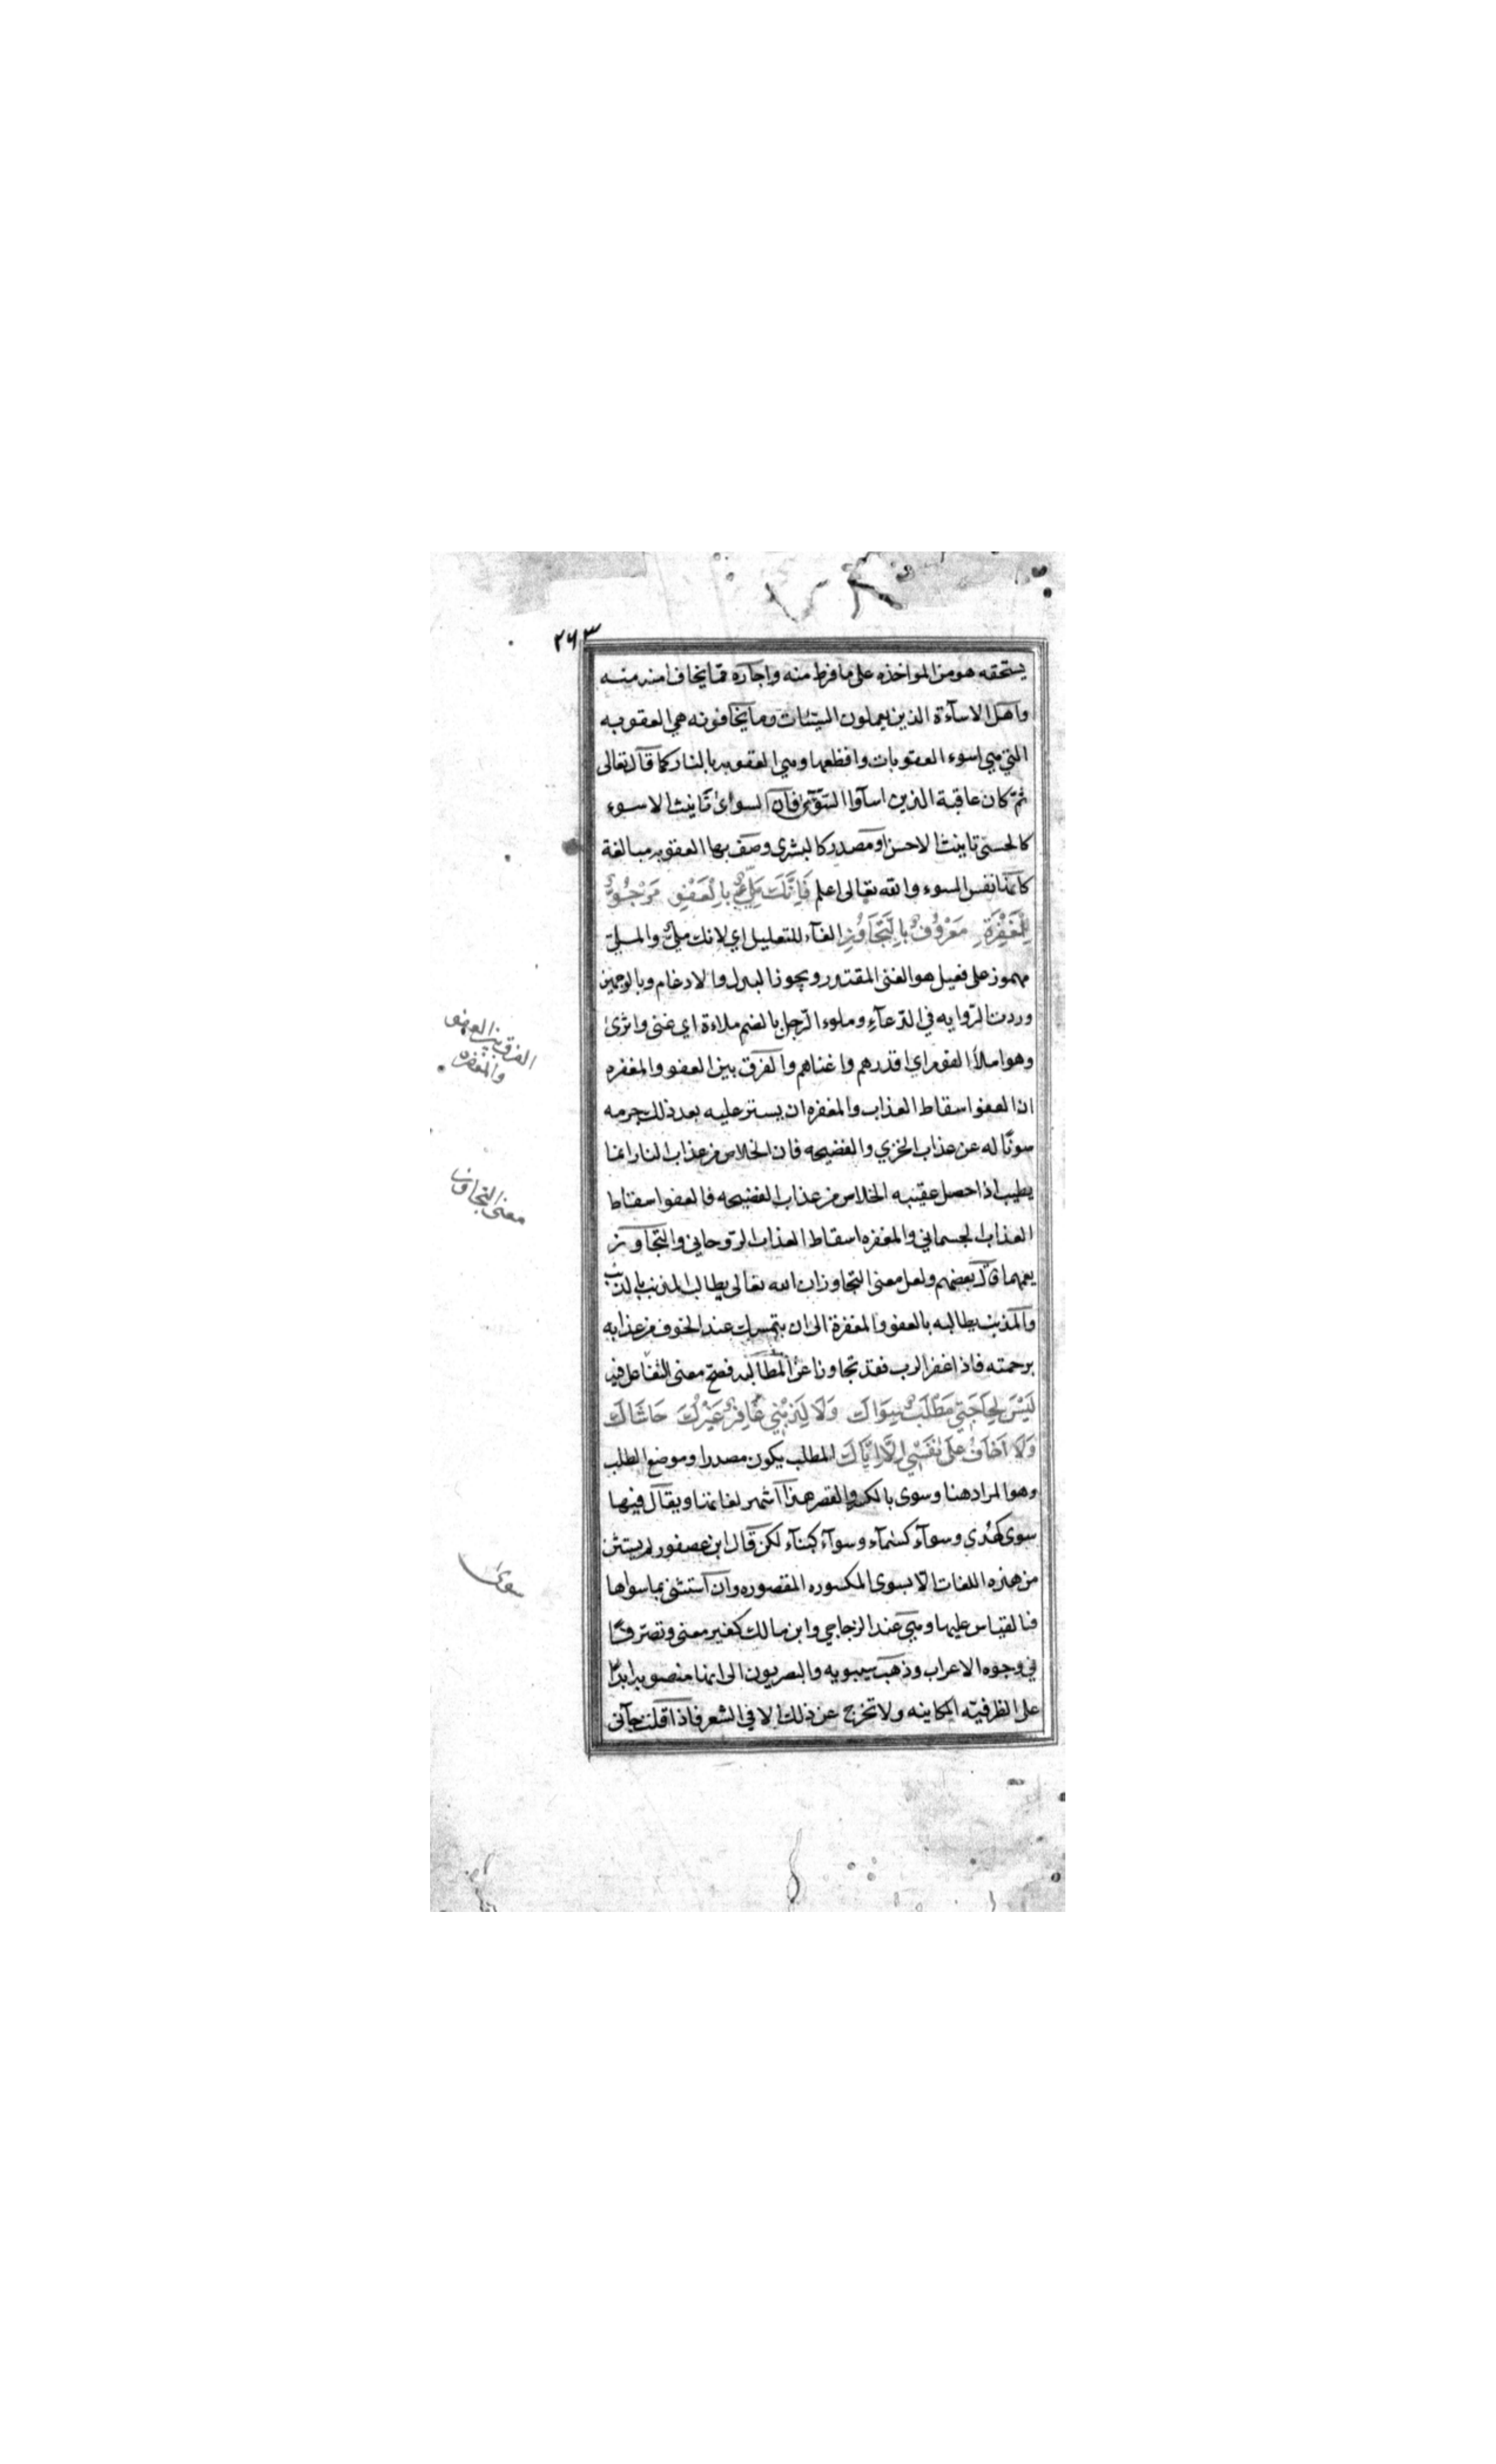 ٢٦٣
يستحقه هو من المواخذه على ما فرط منه واجاره مما يخاف امنه منه
واهل الاسآءة الذين يعملون السيئات وما يخافونه هي العقوبه
التي هي اسوء العقوبات وافظعها وهي العقوبه بالنار كما قال تعالى
ثم كان عاقبة الذين اسآوا السوٓى فان السواى تانيث الاسوء
كالحسنى تانيث الاحسن او مصدر كالبشرى وصف بها العقوبه مبالغة
كانها نفس السوء والله تعالى اعلم فَاِنَّكَ مَلِيٌّ بِالْعَفْوِ مَرْجُوٌّ
لِلْمَغْفِرَةِ مَعْرُوفٌ بِالتَّجَاوُزِ الفآء للتعليل اي لانك ملئ والملئ
مهموز على فعيل هو الغنى المقتدر ويجوز البدل والادغام وبالوجهين
وردت الروايه في الدعآء وملوء الرجل بالضم ملاءة اي غنى واثرى
وهو املأ القوم اي اقدرهم واغناهم والفرق بين العفو والمغفره
ان العفو اسقاط العذاب والمغفره ان يستر عليه بعد ذلك جرمه
صونًا له عن عذاب الخزي والفضيحه فان الخلاص من عذاب النار انما
يطيب اذا حصل عقيبه الخلاص من عذاب الفضيحه فالعفو اسقاط
العذاب الجسماني والمغفره اسقاط العذاب الروحاني والتجاوز
يعمهما قال بعضهم ولعل معنى التجاوز ان الله تعالى يطالب المذنب بالذنب
والمذنب يطالبه بالعفو والمغفرة الى ان يتمسك عند الخوف من عذابه
برحمته فاذا غفر الرب فقد تجاوزا عن المطالبه فصح معنى التفاعل فيه
لَيْسَ لِحَاجَتِي مَطْلَبٌ سِوَاكَ وَلَا لِذَنْبِي غَافِرٌ غَيْرُكَ حَاشَاكَ
وَلَا اَخَافُ عَلَى نَفْسِي اِلَّا اِيَّاكَ المطلب يكون مصدرا وموضع الطلب
وهو المراد هنا وسوى بالكسر والقصر هذا اشهر لغاتها ويقال فيها
سوى كهُدى وسوآء كسمآء وسوآء كبنآء لكن قال ابن عصفور لم يستثن
من هذه اللغات الا بسوى المكسوره المقصوره وان استثنى بما سواها
فبالقياس عليها وهي عند الزجاجي وابن مالك كغير معنى وتصرفًا
في وجوه الاعراب وذهب سيبويه والبصريون الى انها منصوبه ابدًا
على الظرفيّه المكانيه ولا تخرج عن ذلك الا في الشعر فاذا قلت جآنى
الفرق بين العفو
والمغفره
معنى التجاوز
سوى